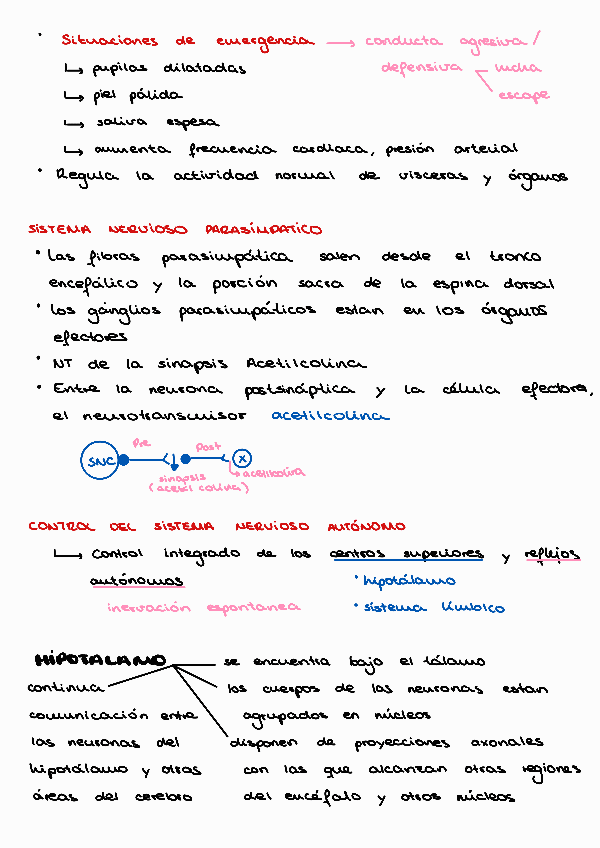 • Situaciones de emergencia → conducta agresiva /
↳ pupilas dilatadas defensiva lucha
↳ piel pálida escape
↳ saliva espesa
↳ aumenta frecuencia cardíaca, presión arterial
• Regula la actividad normal de vísceras y órganos
SISTEMA NERVIOSO PARASIMPÁTICO
• Las fibras parasimpática salen desde el tronco
encefálico y la porción sacra de la espina dorsal
• Los gánglios parasimpáticos estan en los órganos
efectores
• NT de la sinapsis Acetilcolina
• Entre la neurona postsináptica y la célula efectora,
el neurotransmisor acetilcolina
Pre Post
SNC X
sinapsis acetilcolina
(acetil colina)
CONTROL DEL SISTEMA NERVIOSO AUTÓNOMO
↳ Control integrado de los centros superiores y reflejos
autónomos • hipotálamo
inervación espontanea • sistema límbico
HIPOTALAMO se encuentra bajo el tálamo
continua los cuerpos de las neuronas estan
comunicación entre agrupados en núcleos
las neuronas del disponen de proyecciones axonales
hipotálamo y otras con las que alcanzan otras regiones
áreas del cerebro del encéfalo y otros núcleos